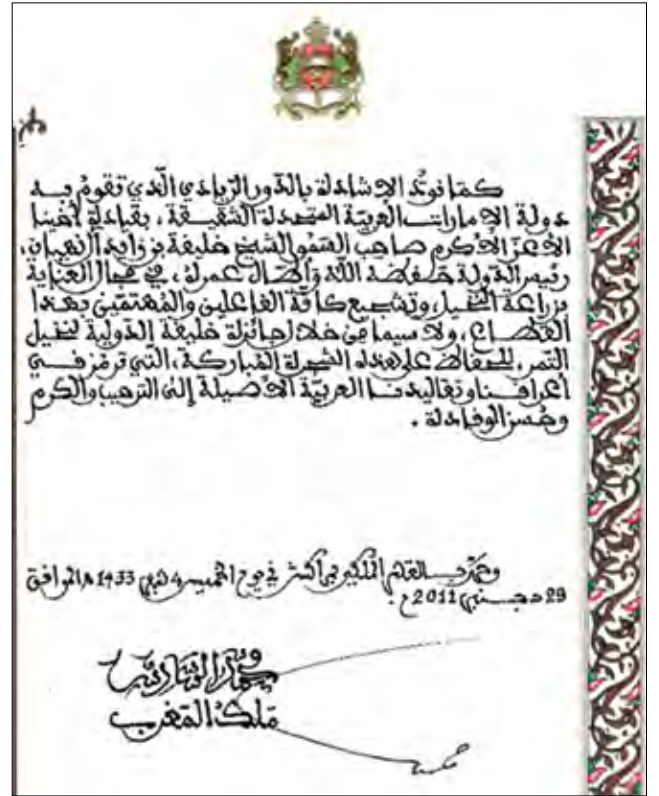 كما نودّ الإشادة بالدّور الرّيادي الّذي تقوم به
دولة الإمارات العربيّة المتحدة الشقيقة، بقيادة أخينا
الأعزّ الأكرم صاحب السّمو الشّيخ خليفة بن زايد آل نهيان،
رئيس الدّولة حفظه اللّه وأطال عمره، في مجال العناية
بزراعة النّخيل، وتشجيع كافّة الفاعلين والمُهتمّين بهذا
القطاع، ولا سيما من خلال جائزة خليفة الدّولية لنخيل
التمر، للحفاظ على هذه الشجرة المُباركة، التي ترمز في
أعرافنا وتقاليدنا العربيّة الأصيلة إلى الترحيب والكرم
وحُسن الوفادة.
وحرّر بالقصر الملكي بمراكش في يوم الخميس 4 صفر 1433 ه الموافق
29 دجنبر 2011 م.
محمد السادس
ملك المغرب